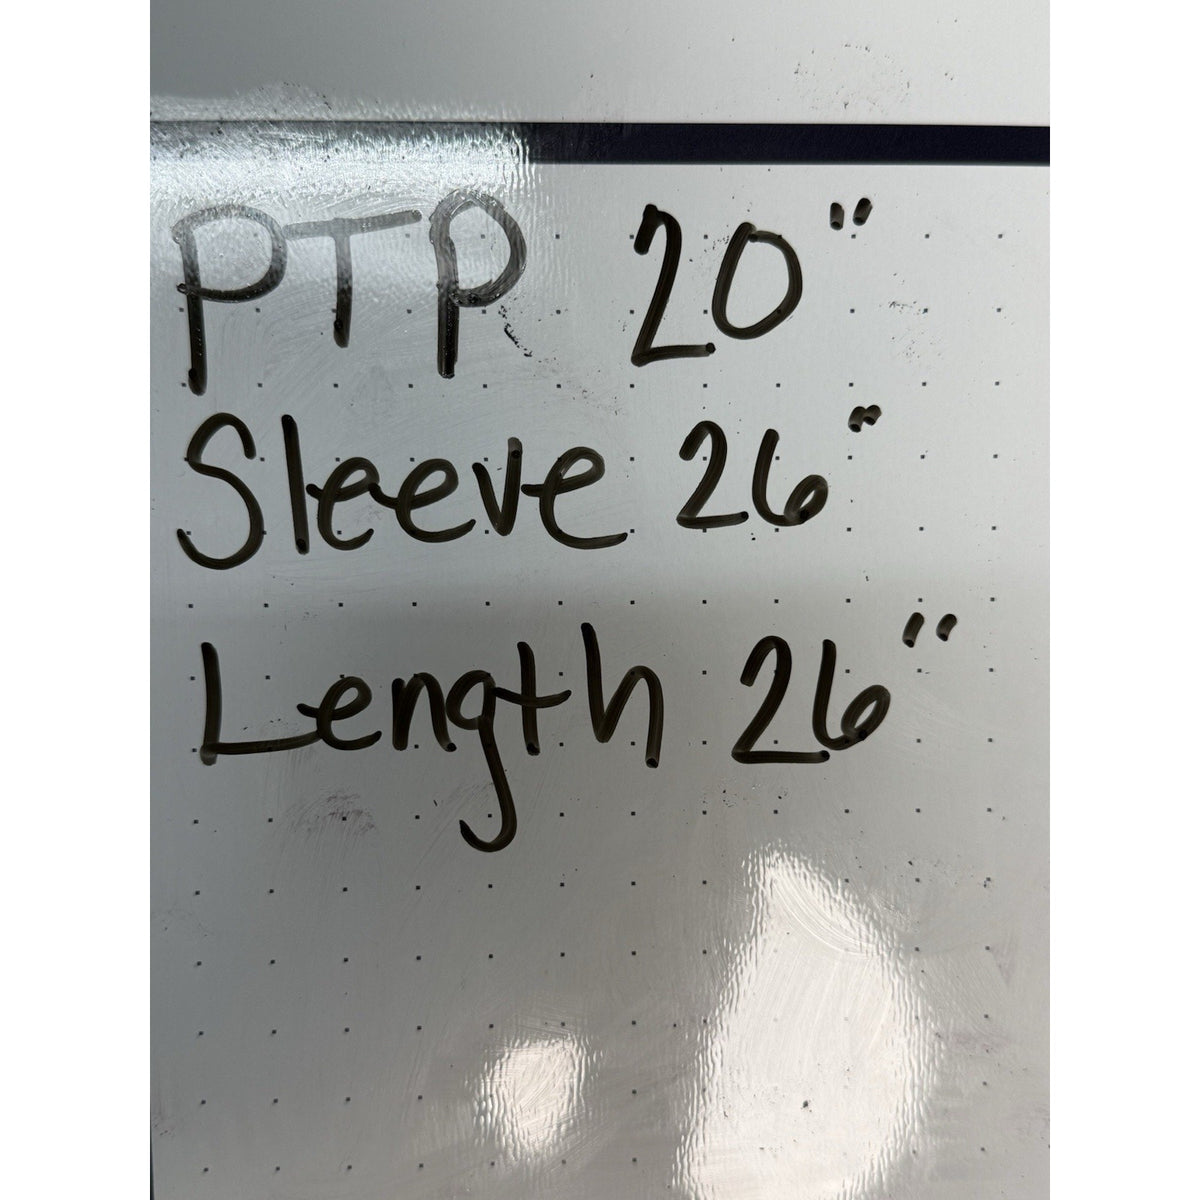 PTP 20"
Sleeve 26"
Length 26"